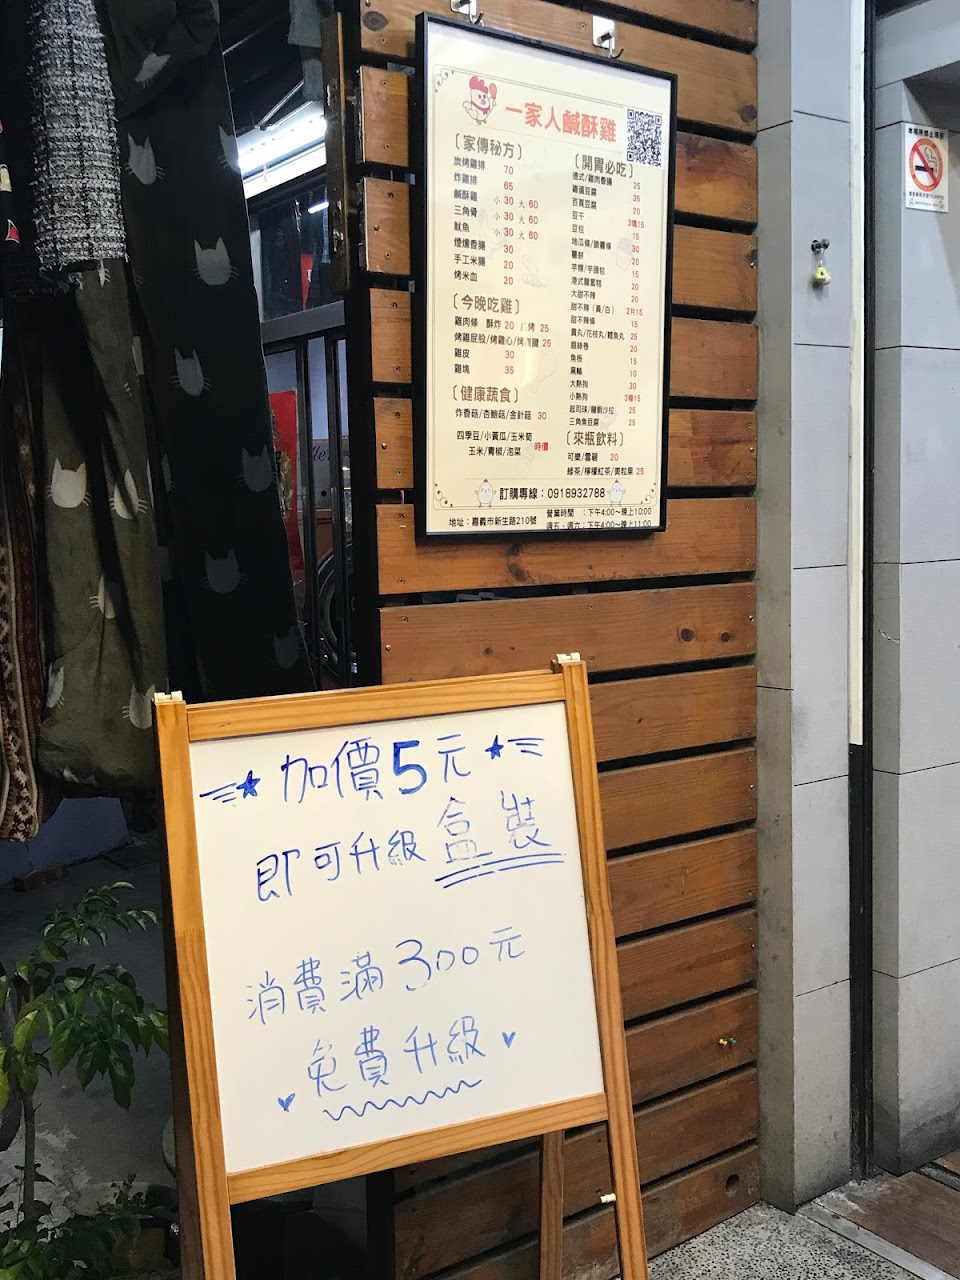 一家人鹹酥雞
〔家傳秘方〕
炭烤雞排 70
炸雞排 65
鹹酥雞 小30 大60
三角骨 小30 大60
魷魚 小30 大60
煙燻香腸 30
手工米腸 20
烤米血 20
〔今晚吃雞〕
雞肉條 酥炸20 烤25
烤雞屁股/烤雞心/烤 25
雞皮 30
雞塊 35
〔健康蔬食〕
炸香菇/杏鮑菇/金針菇 30
四季豆/小黃瓜/玉米筍
玉米/青椒/泡菜 時價
〔開胃必吃〕
德式/雞肉香腸 25
雞蛋豆腐 35
百頁豆腐 20
豆干 3塊15
豆包 15
地瓜條/脆薯條 30
薯餅 20
芋粿/芋頭包 15
港式蘿蔔糕 20
大甜不辣 20
甜不辣(黃/白) 2片15
甜不辣條 15
貢丸/花枝丸/鱈魚丸 25
銀絲卷 20
魚板 15
黑輪 10
大熱狗 30
小熱狗 3條15
起司球/龍蝦沙拉 25
三角魚豆腐 25
〔來瓶飲料〕
可樂/雪碧 20
綠茶/檸檬紅茶/美粒果 25
訂購專線:0918932788
地址:嘉義市新生路210號
營業時間 :下午4:00~晚上10:00
週五、週六:下午4:00~晚上11:00
加價5元
即可升級盒裝
消費滿300元
免費升級